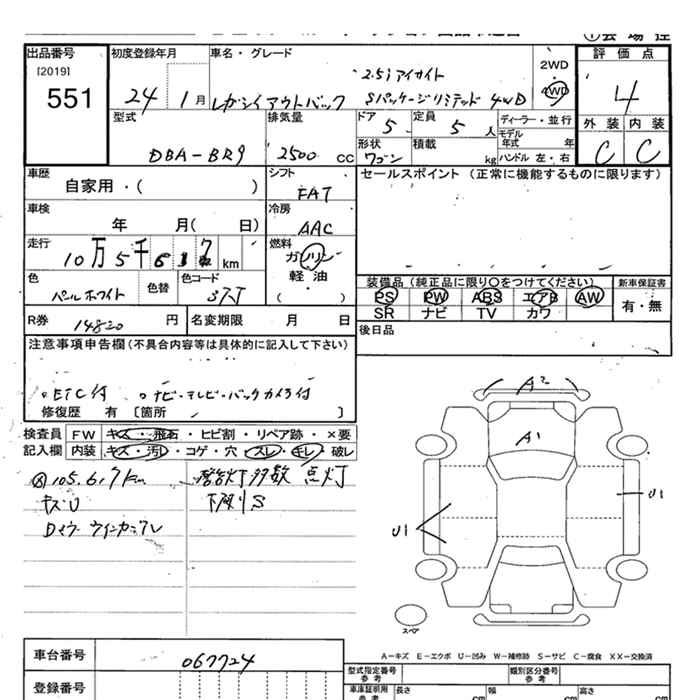 出品番号 初度登録年月 車名・グレード 2WD 評価点
[2019] 2.5i アイサイト
551 24 1月 レガシィアウトバック Sパッケージリミテッド 4WD 4WD 4
型式 排気量 ドア 5 定員 5 人 ディーラー・並行 外装 内装
モデル年式 年
DBA-BR9 2500 cc 形状 ワゴン 積載 kg ハンドル 左・右 C C
車歴 自家用・( ) シフト FAT セールスポイント (正常に機能するものに限ります)
車検 年 月( 日) 冷房 AAC
走行 10万5千6 km 燃料 ガソリン
軽・油
( )
色 パールホワイト 色替 色コード 37J
装備品 (純正品に限り○をつけてください) 新車保証書
PS PW ABS エアB AW 有・無
SR ナビ TV カワ
R券 14820 円 名変期限 月 日 後日品
注意事項申告欄 (不具合内容等は具体的に記入して下さい)
。ETC付 。ナビ・テレビ・バックカメラ付
修復歴 有 [箇所 ]
検査員 FW キズ・飛石・ヒビ割・リペア跡・×要
記入欄 内装 キズ・汚レ・コゲ・穴・スレ・キレ・破レ
105.617km 警告灯多数 点灯
キズU 下廻りS
A2
A1
U1
U1
スペア
A-キズ E-エクボ U-凹み W-補修跡 S-サビ C-腐食 XX-交換済
車台番号 067724
登録番号
型式指定番号 参考 類別区分番号 参考
車庫証明用 参考 長さ cm 幅 cm 高さ cm